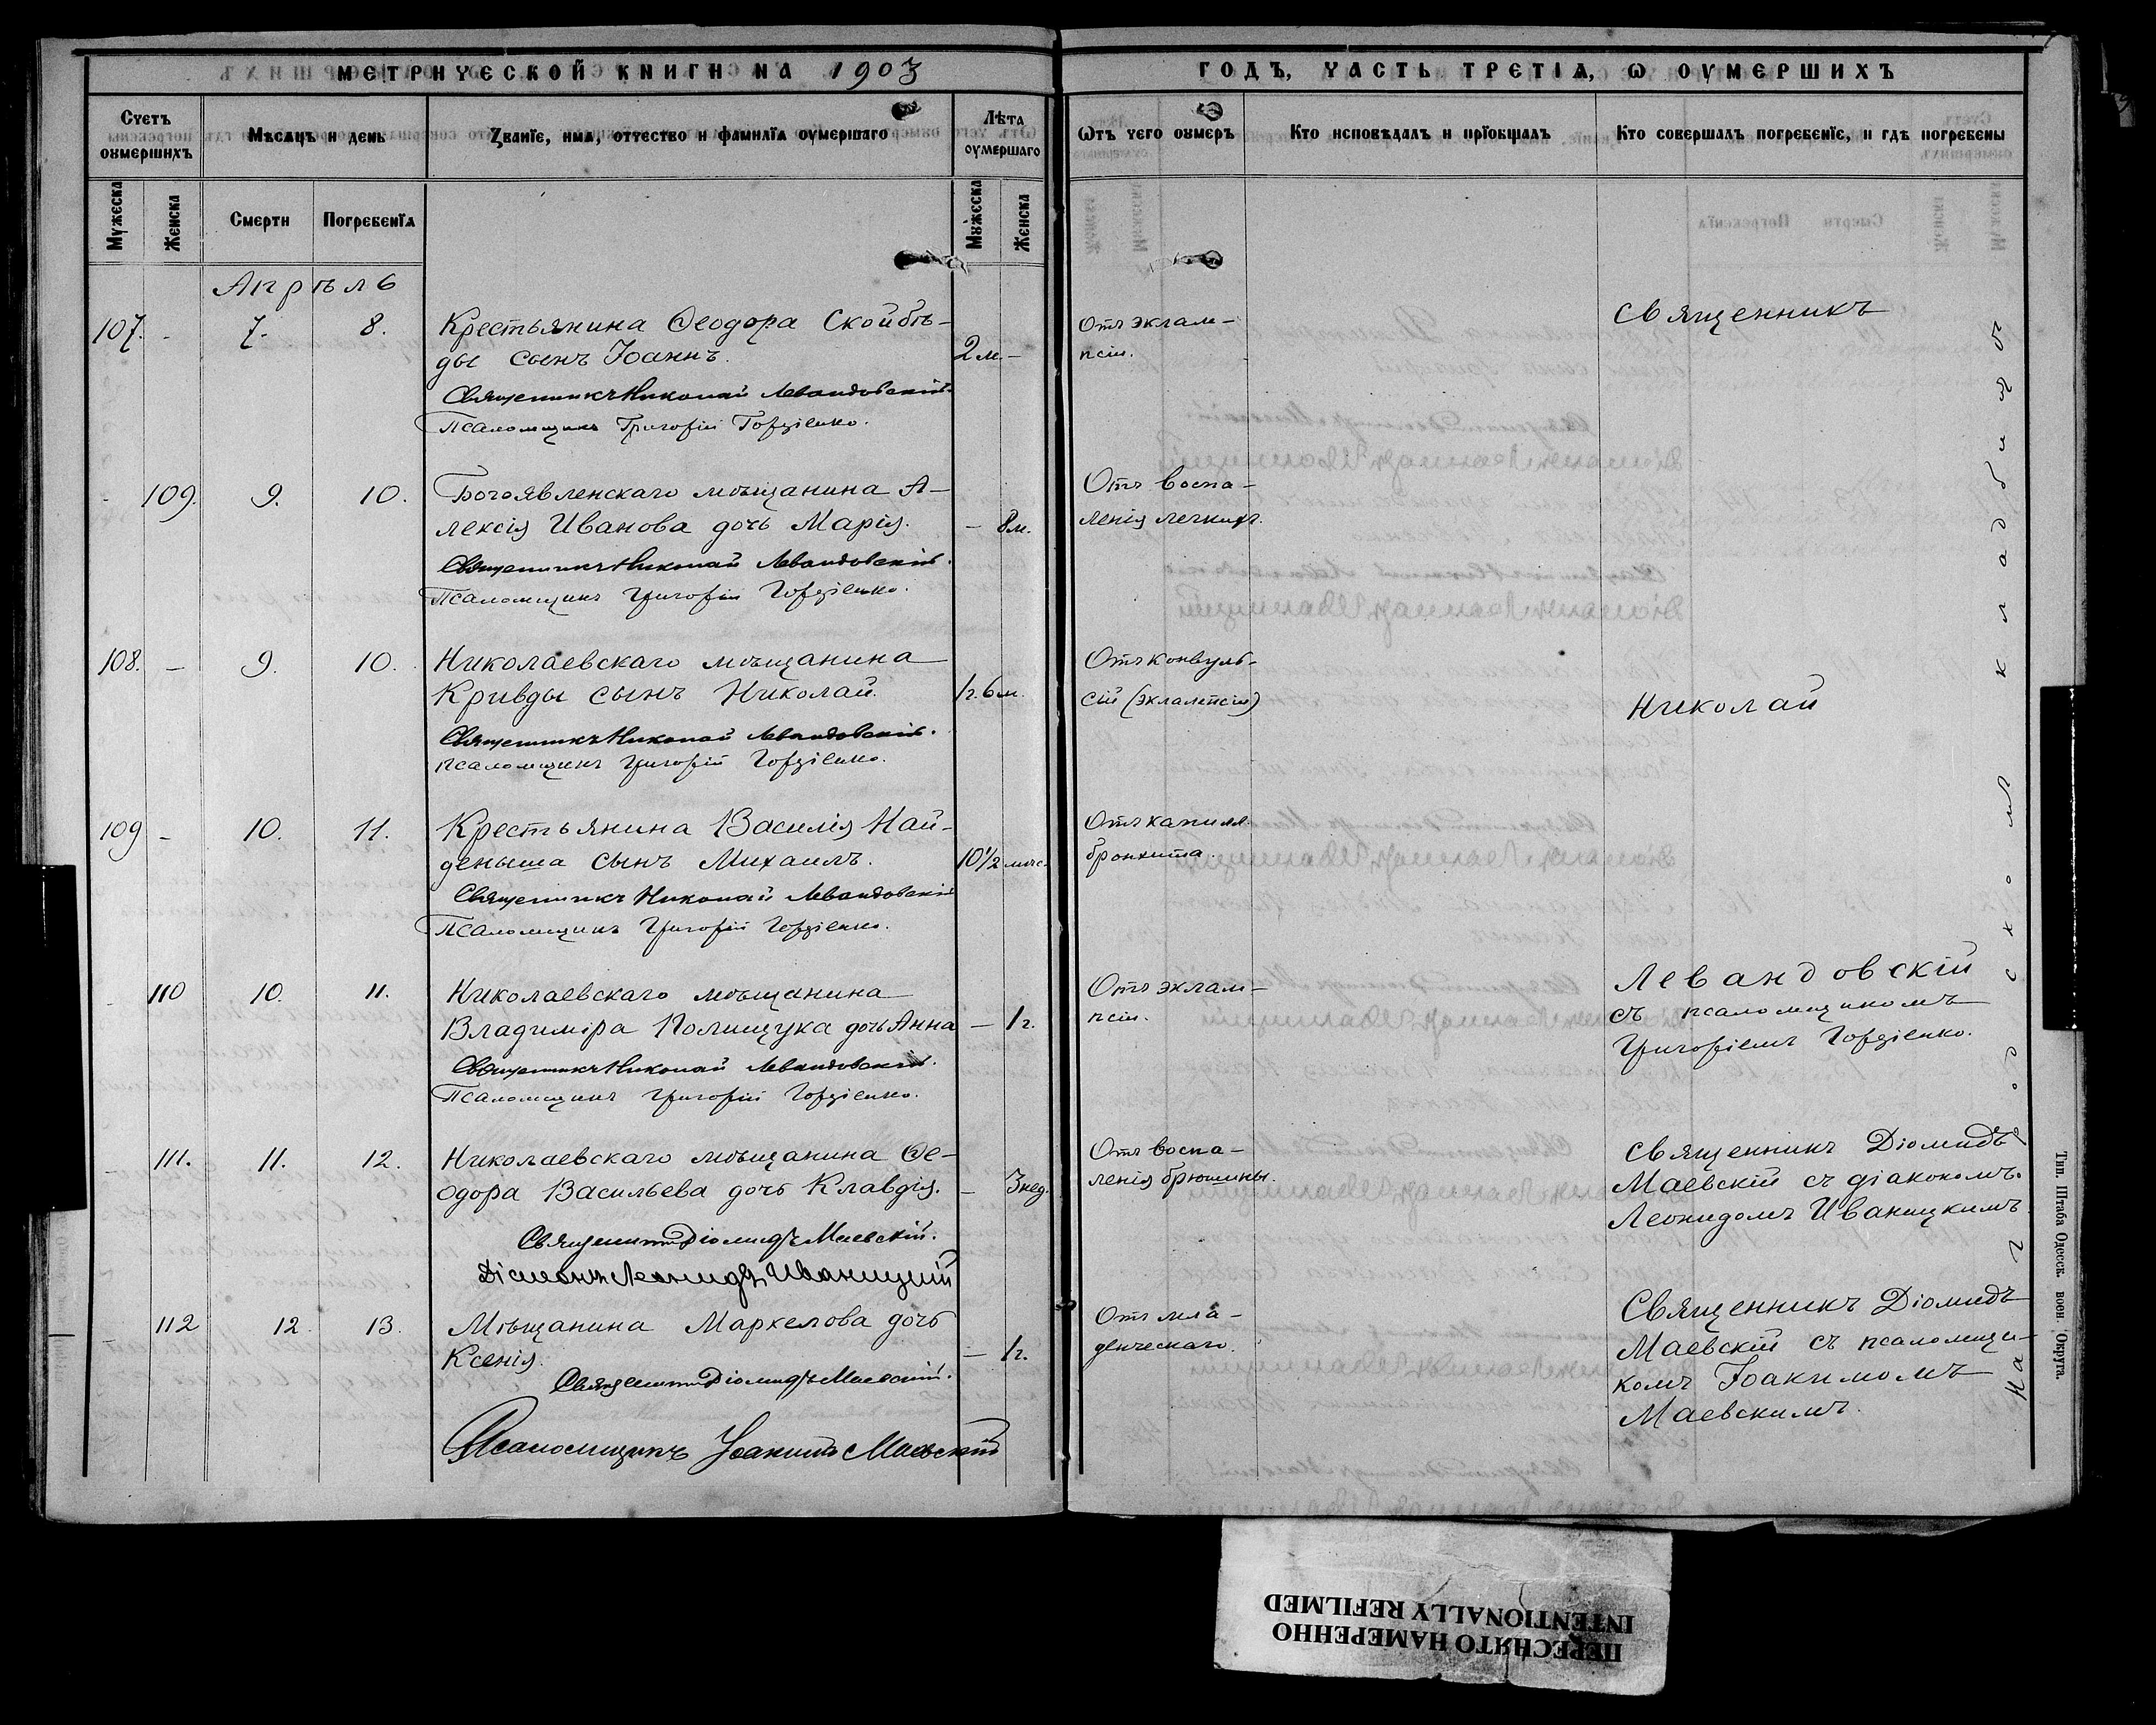 МЕТРИЧЕСКОЙ КНИГИ НА 1903
ГОДЪ, ЧАСТЬ ТРЕТІѦ, Ѡ ОУМЕРШИХЪ
Счетъ оумершихъ
Мѣсѧцъ и день
Званїе, имѧ, отчество и фамилїѧ оумершаго
Лѣта оумершаго
Ѿтъ чего оумеръ
Кто исповѣдалъ и прїобщалъ
Кто совершалъ погребенїе, и гдѣ погребены
Мужеска
Женска
Смерти
Погребенїѧ
Мужеска
Женска
Апрѣль
107. - 7. 8. Крестьянина Ѳеодора Скойбѣ-
ды сынъ Іоаннъ. 2 м. -
Отъ эклам-
псіи.
Священникъ
Священникъ Николай Левандовскій.
Псаломщикъ Григорій Гордіенко.
- 109. 9. 10. Богоявленскаго мѣщанина А-
лексія Иванова дочь Марія. - 8 м.
Отъ воспа-
ленія легкихъ.
Священникъ Николай Левандовскій.
Псаломщикъ Григорій Гордіенко.
108. - 9. 10. Николаевскаго мѣщанина
Кривды сынъ Николай. 1 г. 6 м.
Отъ конвуль-
сій (эклампсіи)
Николай
Священникъ Николай Левандовскій.
Псаломщикъ Григорій Гордіенко.
109 - 10. 11. Крестьянина Василія Най-
деныша сынъ Михаилъ. 10 1/2 мѣс.
Отъ капилл.
бронхита.
Священникъ Николай Левандовскій
Псаломщикъ Григорій Гордіенко.
- 110 10. 11. Николаевскаго мѣщанина
Владиміра Полищука дочь Анна - 1 г.
Отъ эклам-
псіи.
Левандовскій
съ псаломщикомъ
Григоріемъ Гордіенко.
Священникъ Николай Левандовскій.
Псаломщикъ Григорій Гордіенко.
- 111. 11. 12. Николаевскаго мѣщанина Ѳе-
одора Васильева дочь Клавдія. - 3 нед.
Отъ воспа-
ленія брюшины.
Священникъ Діомидъ
Маевскій съ діакономъ
Леонидомъ Иваницкимъ
Священникъ Діомидъ Маевскій.
Діаконъ Леонидъ Иваницкій
- 112 12. 13. Мѣщанина Маркелова дочь
Ксенія. - 1 г.
Отъ мла-
денческаго.
Священникъ Діомидъ
Маевскій съ псаломщи-
комъ Іоакимомъ
Маевскимъ.
Священникъ Діомидъ Маевскій.
Псаломщикъ Іоакимъ Маевскій
На городскомъ кладбищѣ
Тип. Штаба Одесск. воен. Округа.
ПЕРЕСНЯТО НАМЕРЕННО
INTENTIONALLY REFILMED